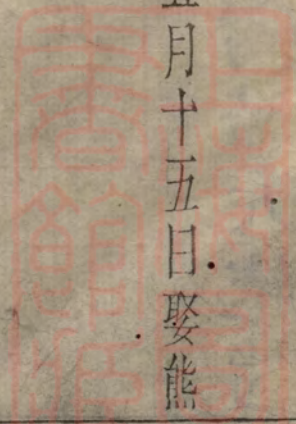 五月十五日娶熊